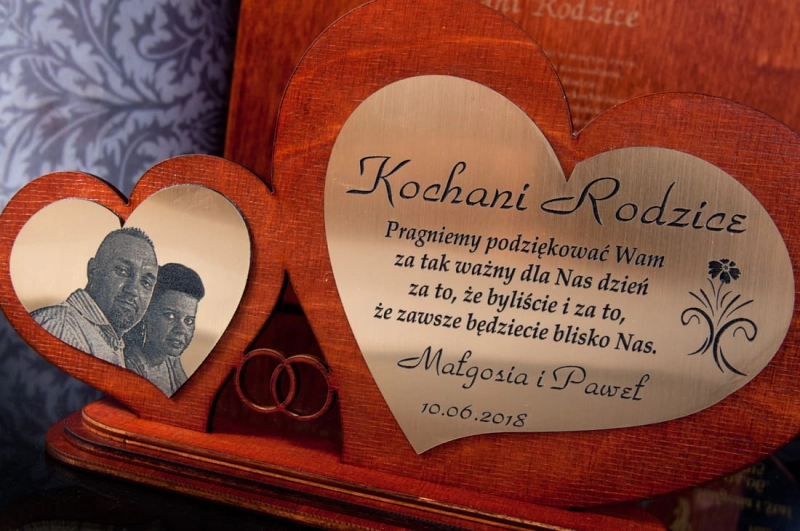 ani Rodzice
Kochani Rodzice
Pragniemy podziękować Wam
za tak ważny dla Nas dzień
za to, że byliście i za to,
że zawsze będziecie blisko Nas.
Małgosia i Paweł
10.06.2018